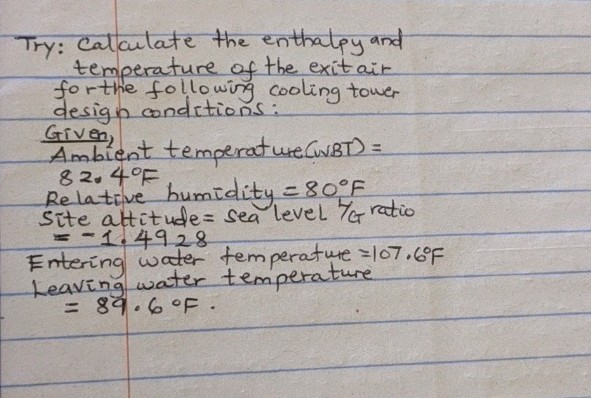 Try: Calculate the enthalpy and
temperature of the exit air
for the following cooling tower
design conditions:
Given,
Ambient temperature (WBT) =
82.4°F
Relative humidity = 80°F
Site attitude = sea level L/G ratio
= -1.4928
Entering water temperature = 107.6°F
Leaving water temperature
= 89.6 °F.